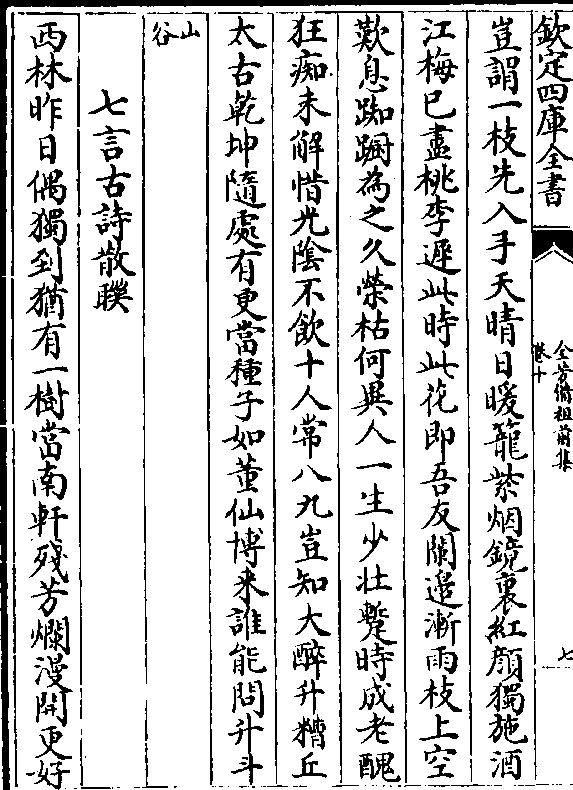 欽定四庫全書
全芳備祖前集
卷十
七
豈謂一枝先入手天晴日暖籠紫烟鏡裏紅顔獨施酒
江梅已盡桃李遲此時此花即吾友闌邉漸雨枝上空
歎息踟蹰為之久榮枯何異人一生少壯蹔時成老醜
狂痴未解惜光陰不飲十人常八九豈知大醉升糟丘
太古乾坤隨處有更當種子如董仙博米誰能問升斗
山谷
七言古詩散聨
西林昨日偶獨到猶有一樹當南軒殘芳爛漫開更好